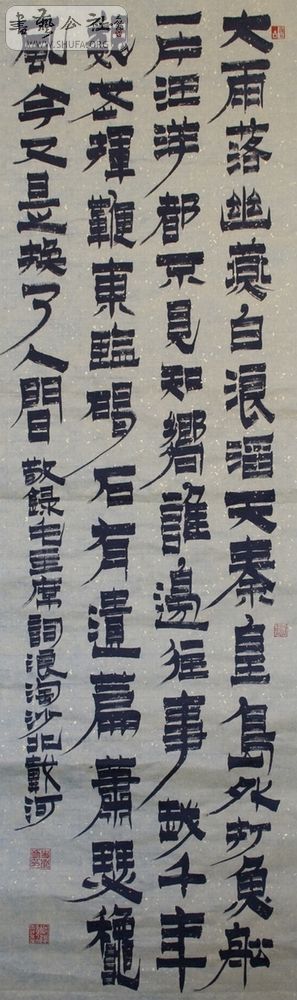 書藝公社
WWW.SHUFA.ORG
大雨落幽燕白浪滔天秦皇島外打魚舩
一片汪洋都不見知嚮誰邊往事越千年
魏武揮鞭東臨碣石有遺篇蕭瑟穐
風今又是換了人間
敬錄毛主席詞浪淘沙北戴河